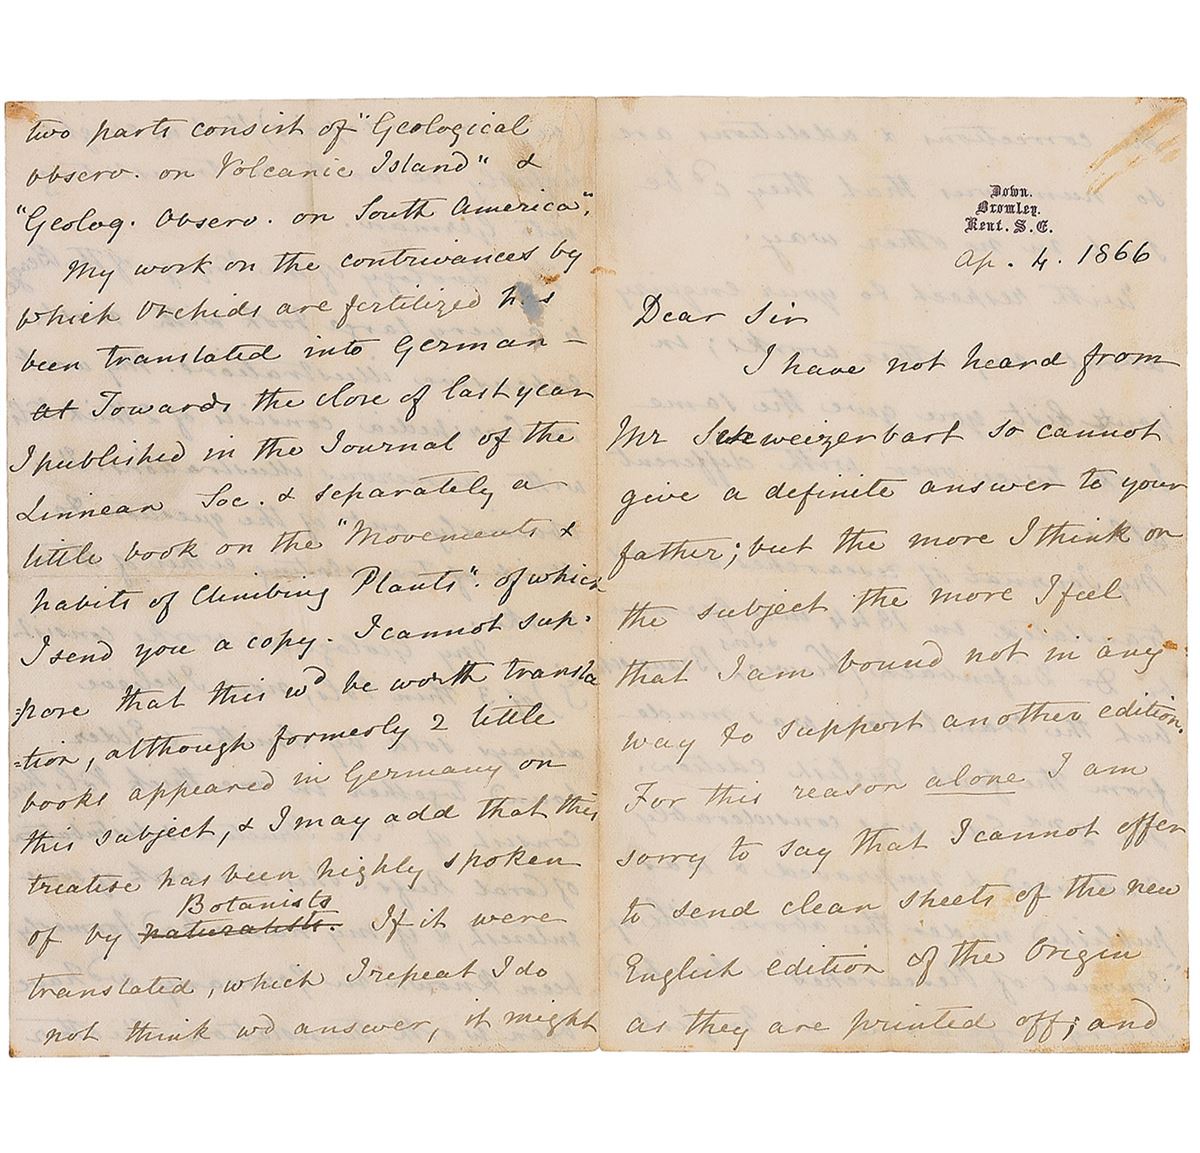 Down.
Bromley.
Kent. S.E.
Ap. 4. 1866
Dear Sir
I have not heard from
Mr Schweizerbart so cannot
give a definite answer to your
father; but the more I think on
the subject the more I feel
that I am bound not in any
way to support another edition.
For this reason alone I am
sorry to say that I cannot offer
to send clean sheets of the new
English edition of the Origin
as they are printed off; and
two parts consist of "Geological
Observ. on Volcanic Island" &
"Geolog. Observ. on South America".
My work on the contrivances by
which Orchids are fertilized has
been translated into German –
at Towards the close of last year
I published in the Journal of the
Linnean Soc. & separately a
little book on the "Movements &
habits of Climbing Plants". of which
I send you a copy. I cannot sup-
pose that this wd be worth transla
-tion, although formerly 2 little
books appeared in Germany on
this subject, & I may add that this
treatise has been highly spoken
Botanists
of by naturalists. If it were
translated, which I repeat I do
not think wd answer, it might